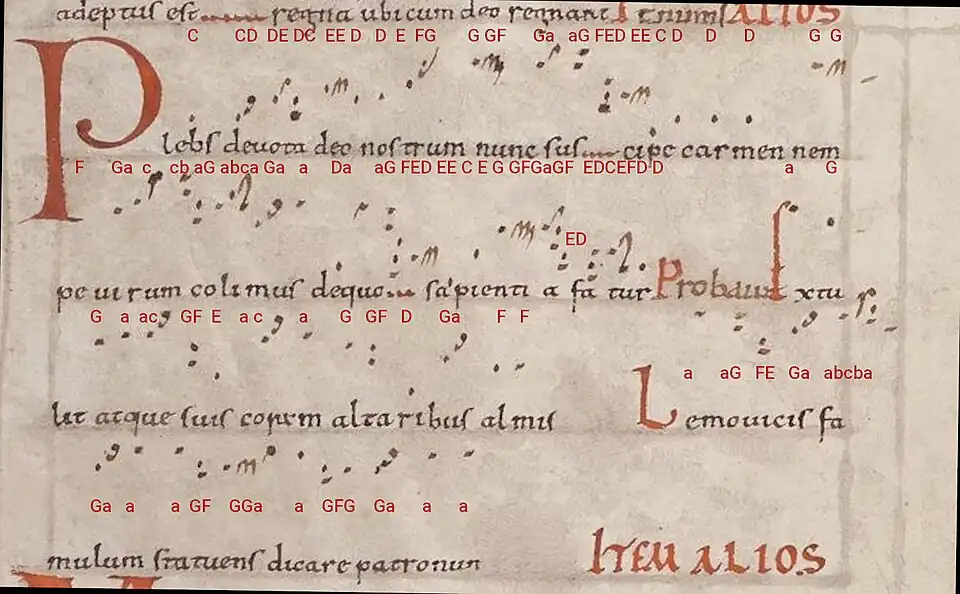 adeptus est regna ubicum deo regnant Trium ALIOS
C CD DE DC EE D D E FG G GF Ga aG FED EE C D D D G G
Plebs devota deo nostrum nunc suscipe carmen nem
F Ga c cb aG abca Ga a Da aG FED EE C E G GFGaGF EDCEFD D a G
ED
pe uirum colimus dequo sapienti a fatur Probauit xtu
G a ac GF E a c a G GF D Ga F F
a aG FE Ga abcba
lit atque suis altaribus almis Lemouicis fa
Ga a a GF GGa a GFG Ga a a
mulum statuens dicare patronum ITEM ALIOS